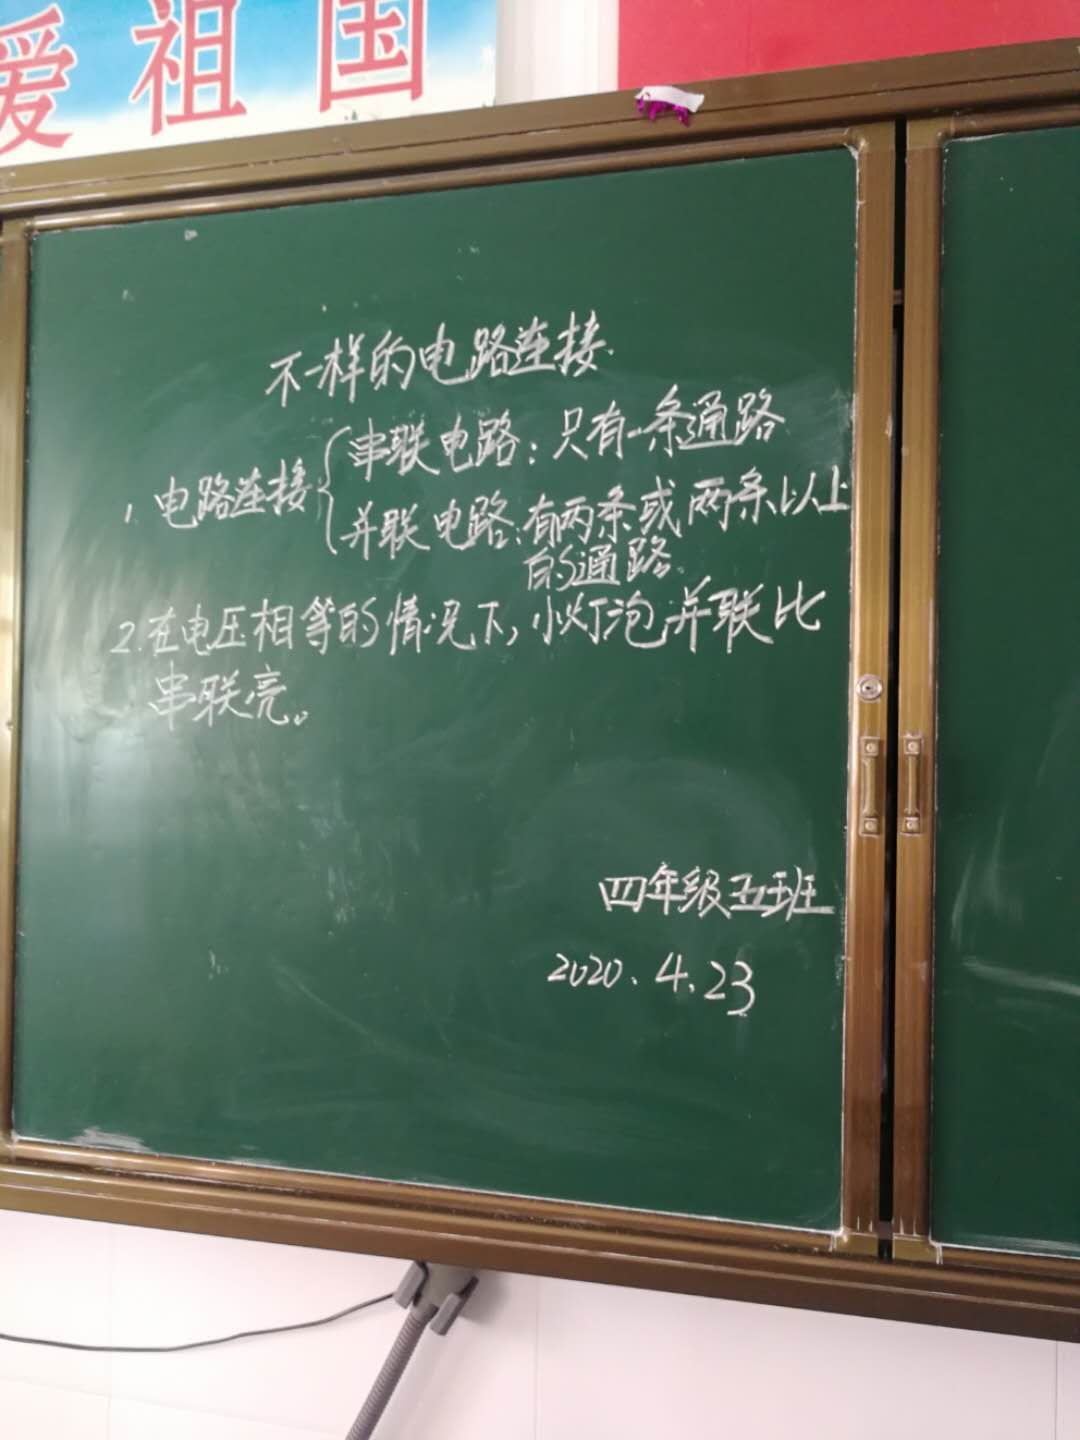 爱祖国
不一样的电路连接.
串联电路:只有一条通路
1.电路连接
并联电路:有两条或两条以上
的通路.
2.在电压相等的情况下,小灯泡并联比
串联亮。
四年级五班
2020.4.23